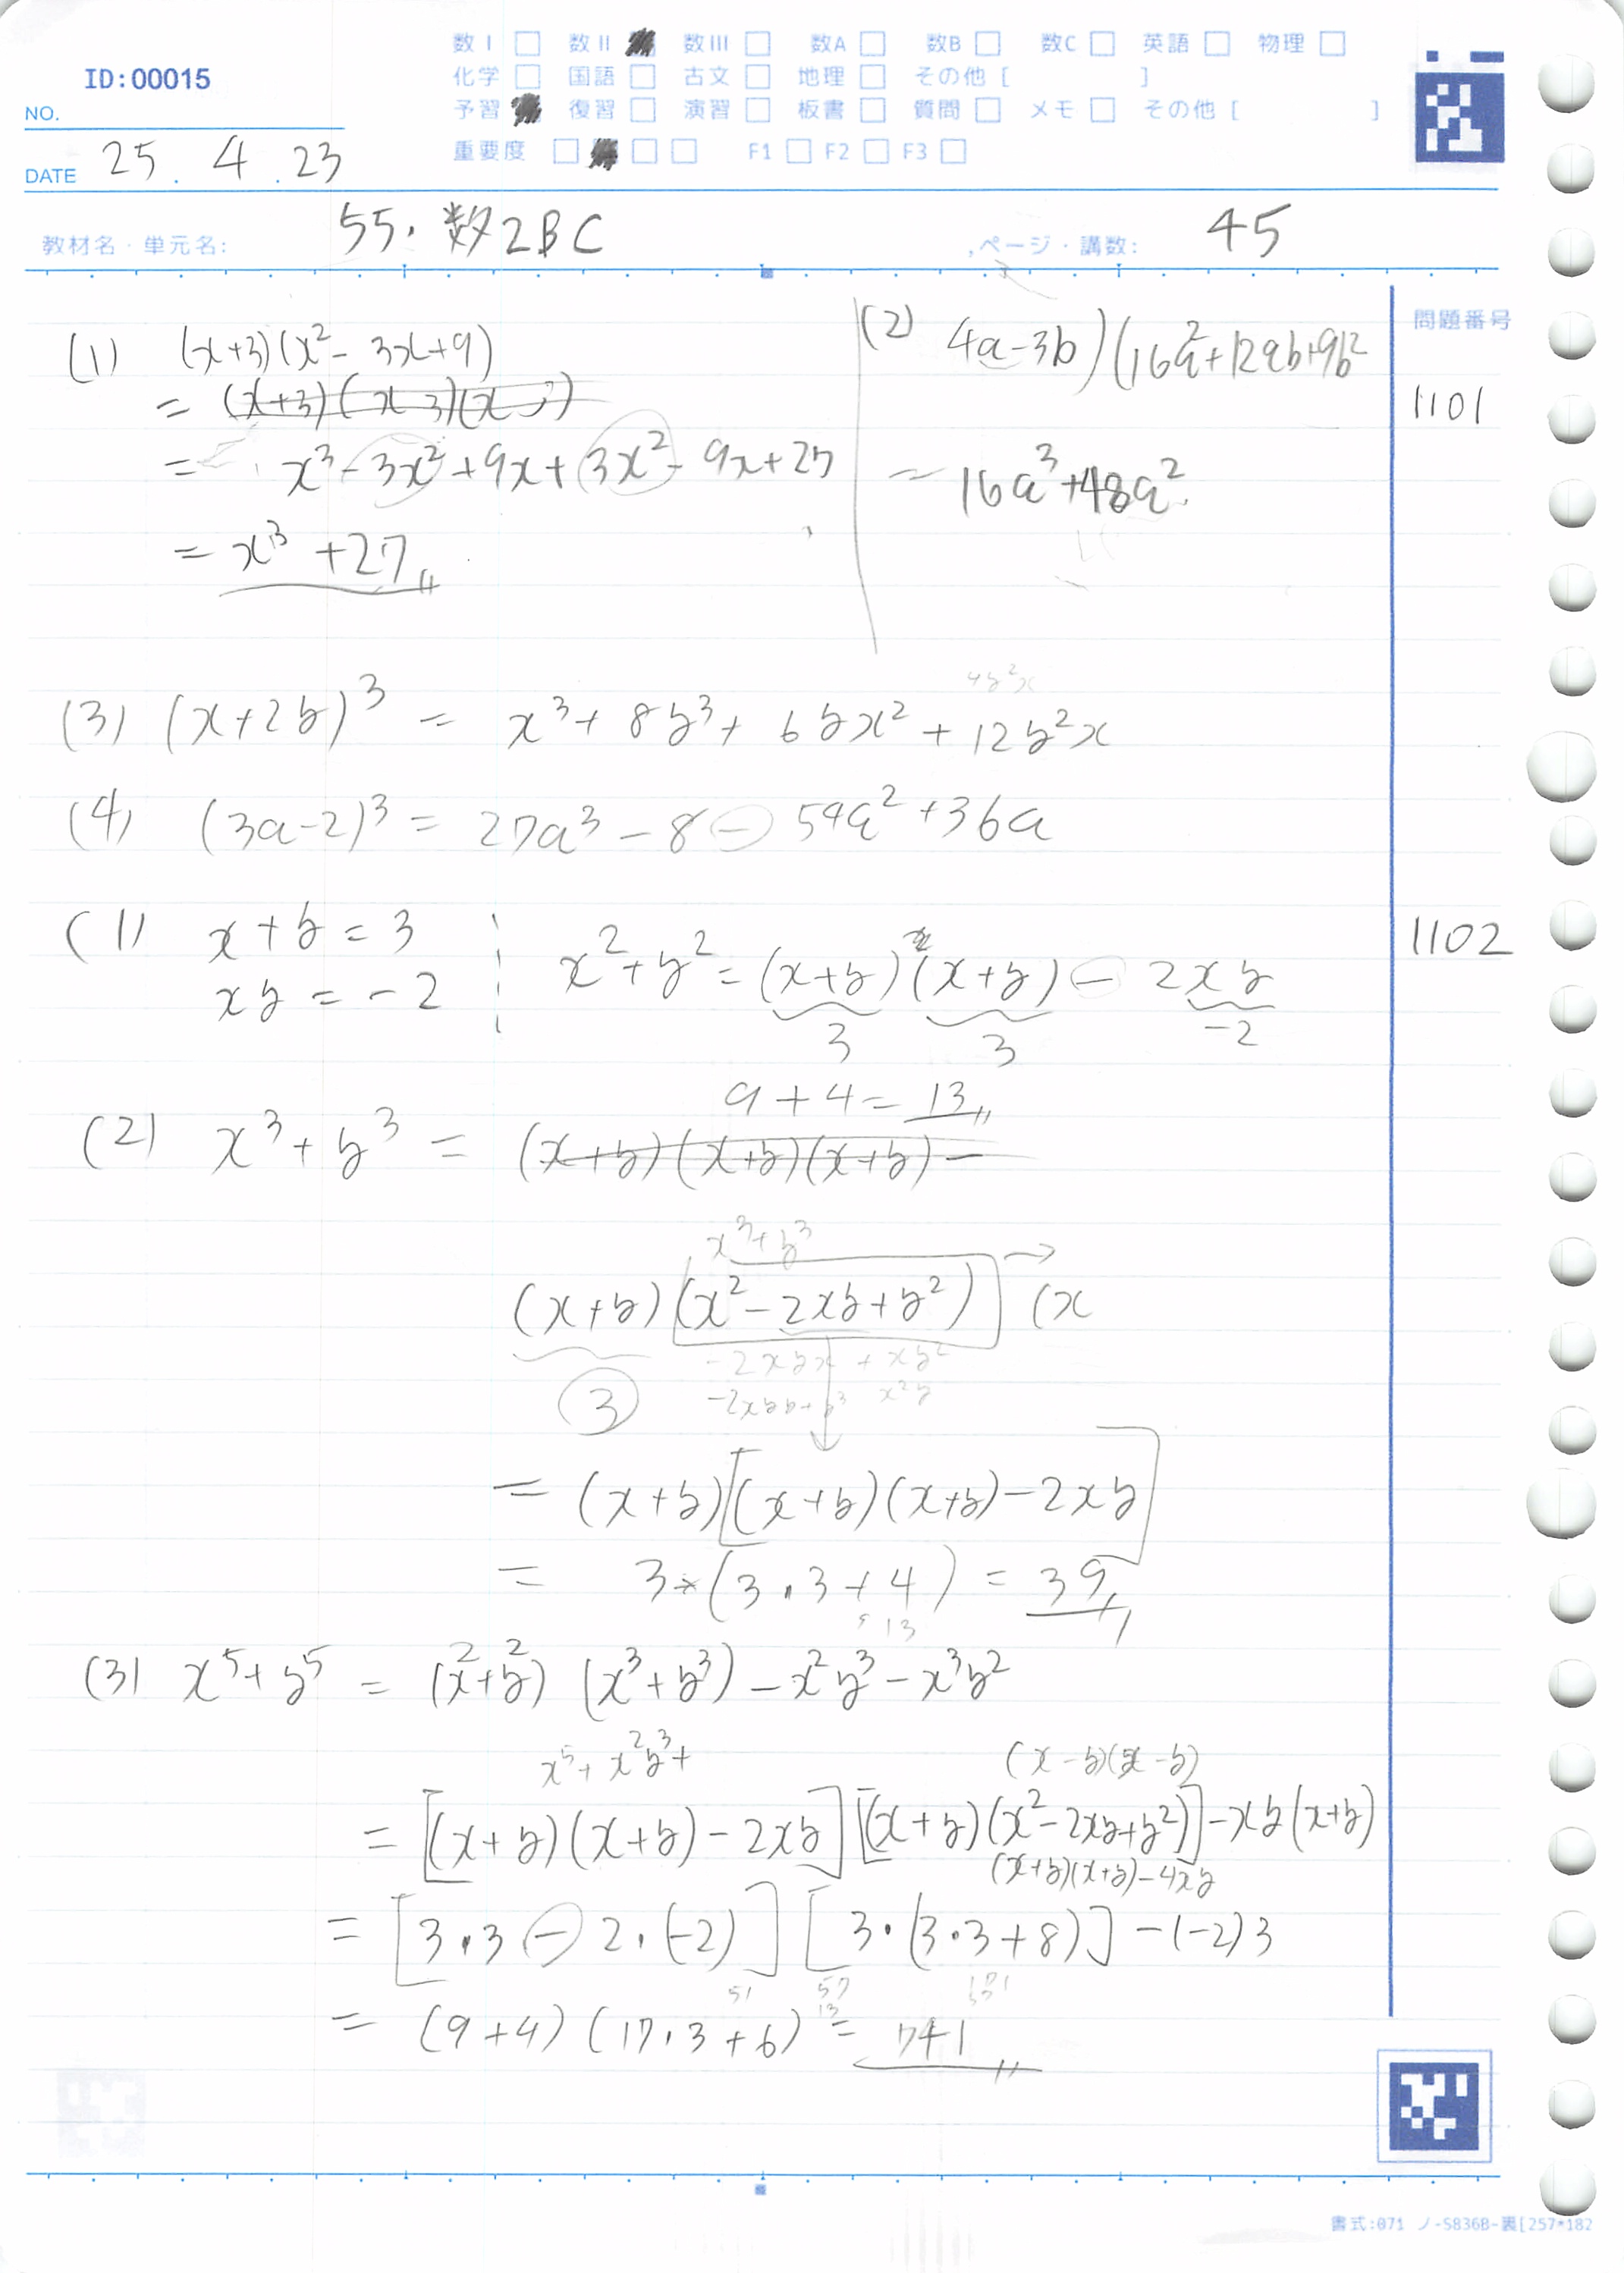 数I □ 数II 数III □ 数A □ 数B □ 数C □ 英語 □ 物理 □
ID:00015
化学 □ 国語 □ 古文 □ 地理 □ その他 [ ]
NO.
予習 復習 □ 演習 □ 板書 □ 質問 □ メモ □ その他 [ ]
DATE 25 . 4 . 23
重要度 □ □ □ F1 □ F2 □ F3 □
教材名・単元名: 55. 数2BC ページ・講数: 45
問題番号
1101
(1) (x+3)(x²-3x+9)
= (x+3)(x-3)(x
= x³-3x²+9x+3x²-9x+27
= x³+27
(2) 4a-3b)(16a²+12ab+9b²
= 16a³+48a²
4y²x
(3) (x+2y)³ = x³+8y³+6yx²+12y²x
(4) (3a-2)³ = 27a³-8-54a²+36a
1102
(1) x+y=3
xy=-2
x²+y²=(x+y)(x+y)-2xy
3 3 -2
9+4=13
(2) x³+y³ = (x+y)(x+y)(x+y)-
x³+y³
(x+y)(x²-2xy+y²) → (x
-2xyx + xy²
③ -2xyy+y³ x²y
= (x+y)[(x+y)(x+y)-2xy]
= 3×(3・3+4) = 39
13
(3) x⁵+y⁵ = (x²+y²)(x³+y³)-x²y³-x³y²
x⁵+x²y³+ (x-y)(x-y)
= [(x+y)(x+y)-2xy][(x+y)(x²-2xy+y²)]-xy(x+y)
(x+y)(x+y)-4xy
= [3・3-2・(-2)][3・(3・3+8)]-(-2)3
51 57
13
= (9+4)(17・3+6) = 741
書式:071 ノ-S836B-裏[257*182